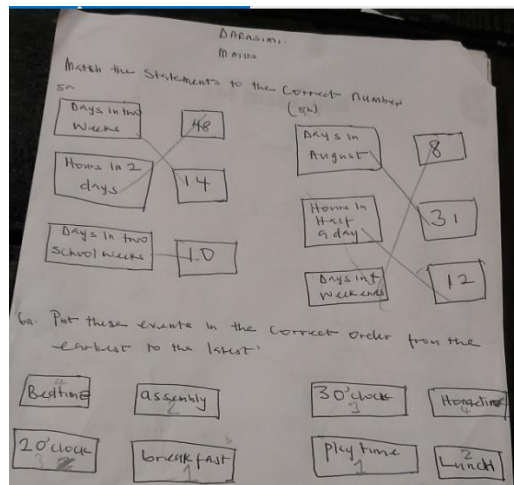 DARASIMI.
MATHS
Match the Statements to the Correct number
5a
(5b)
Days in two
Weeks
48
Days in
August
8
Hours in 2
days
14
Hours in
Half
a day
31
Days in two
School weeks
10
Days in 4
Weekends
12
6a. Put these events in the Correct order from the
earliest to the latest.
Bedtime
4
assembly
2
3 O'clock
3
Hometime
4
2 O'clock
3
breakfast
1
playtime
1
Lunch
2